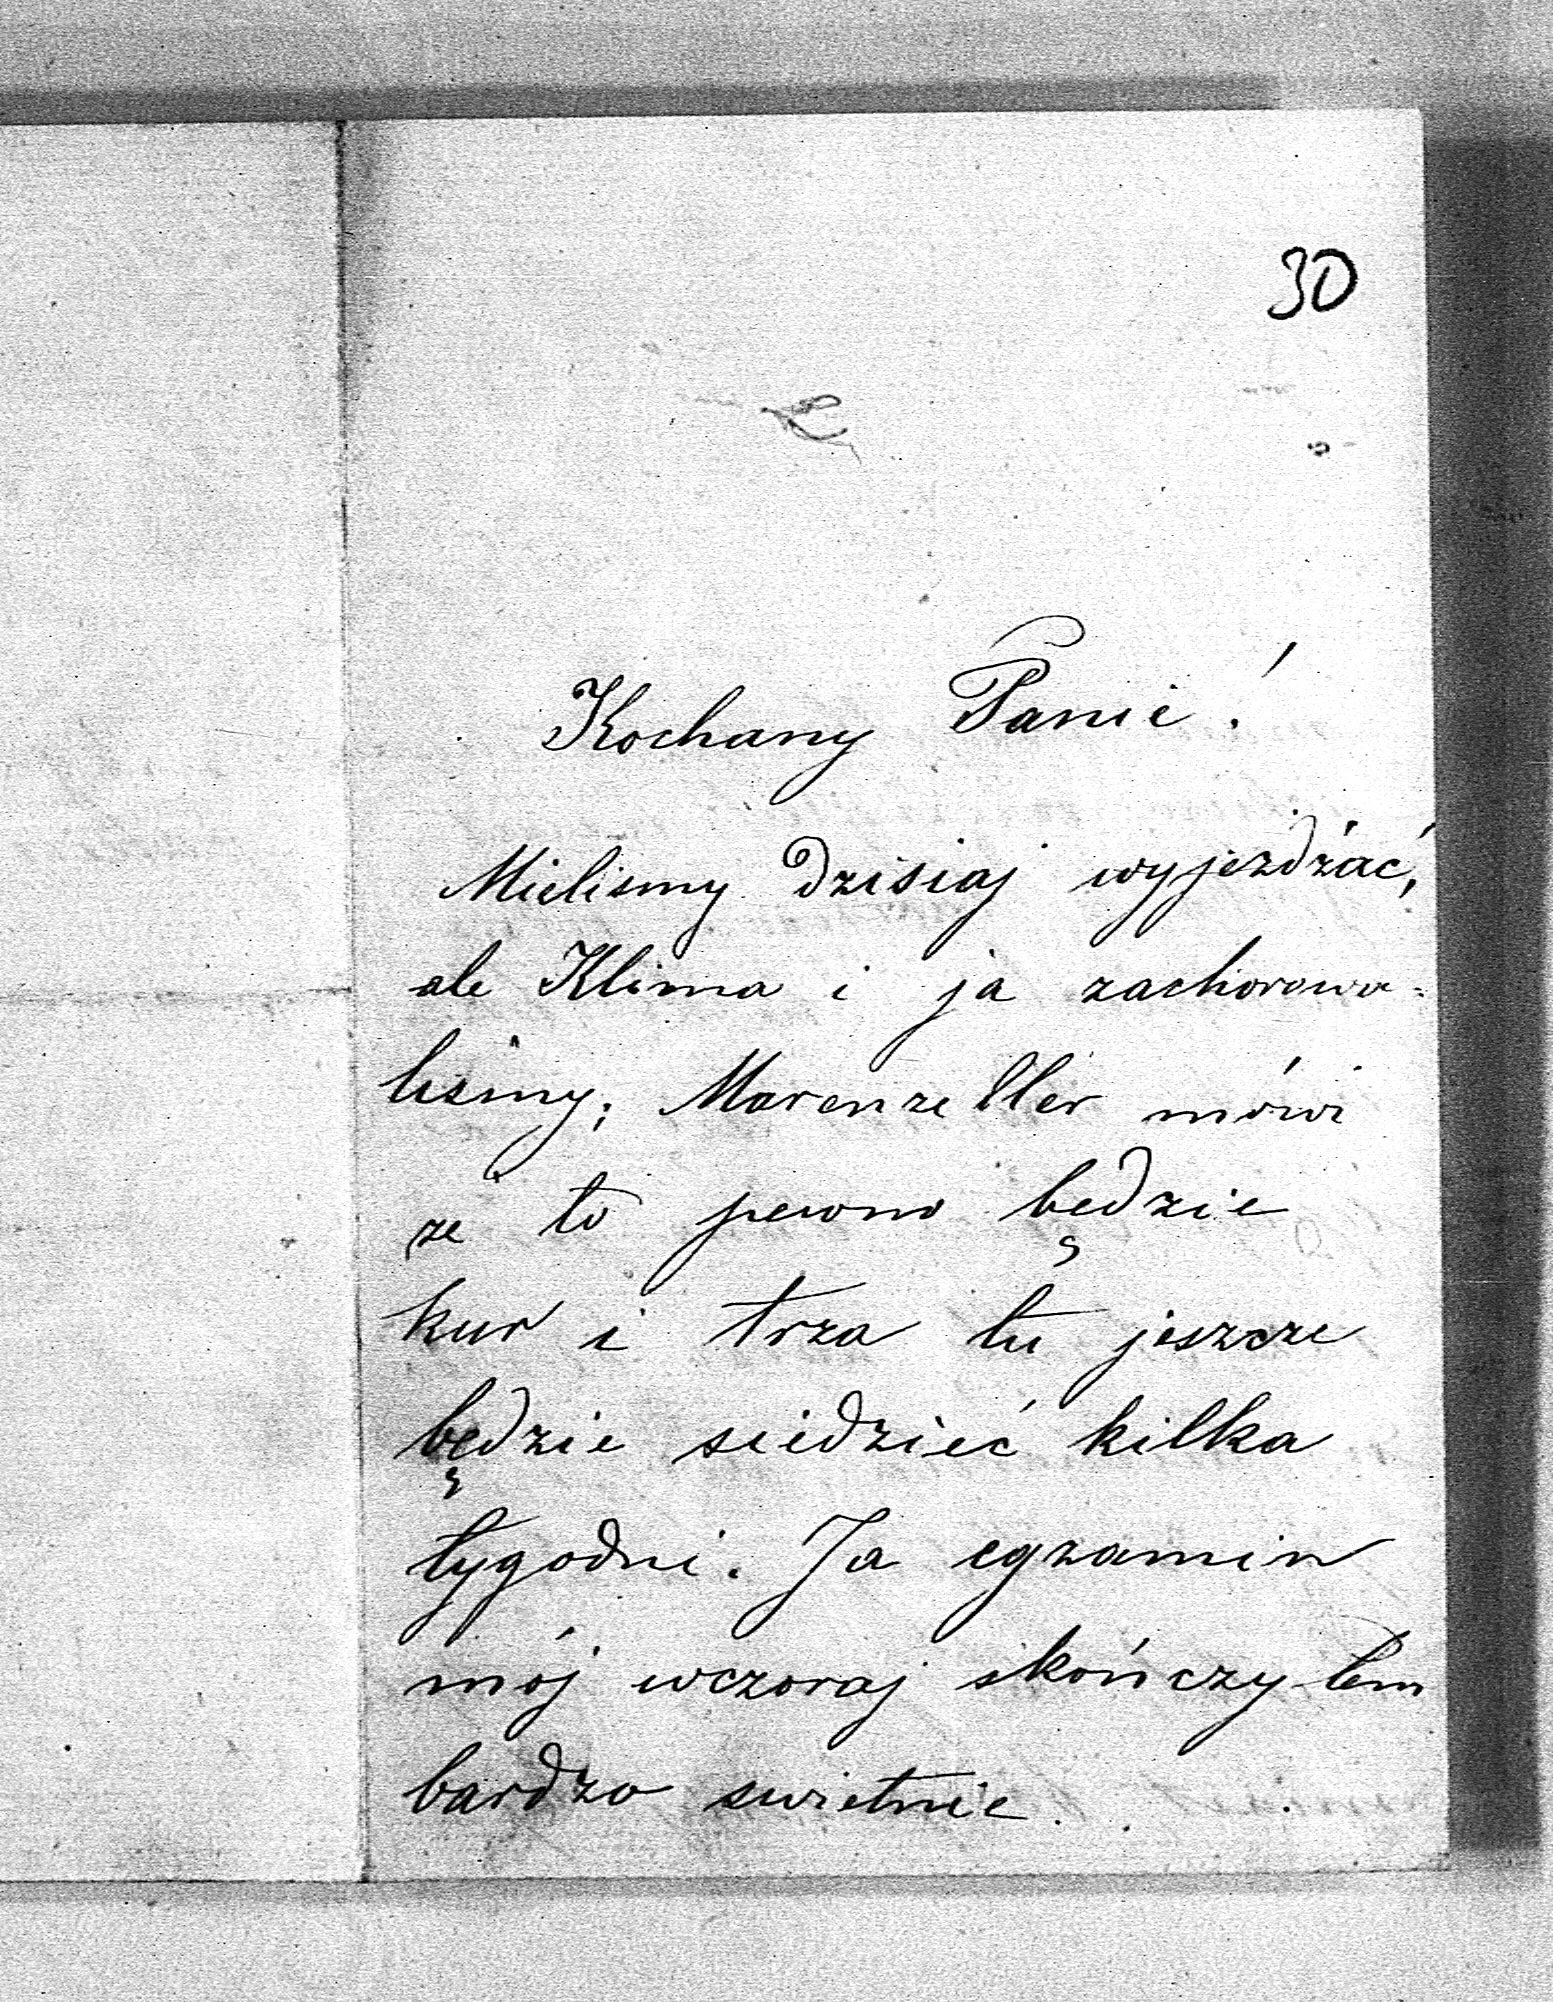 30
Kochany Panie!
Mielismy dzisiaj wyjezdżać,
ale Klima i ja zachorowa-
liśmy; Marenzeller mówi
ze to pewno będzie
kur i trza tu jeszcze
będzie siedzieć kilka
tygodni. Ja egzamin
mój wczoraj skończyłem
bardzo swietnie.